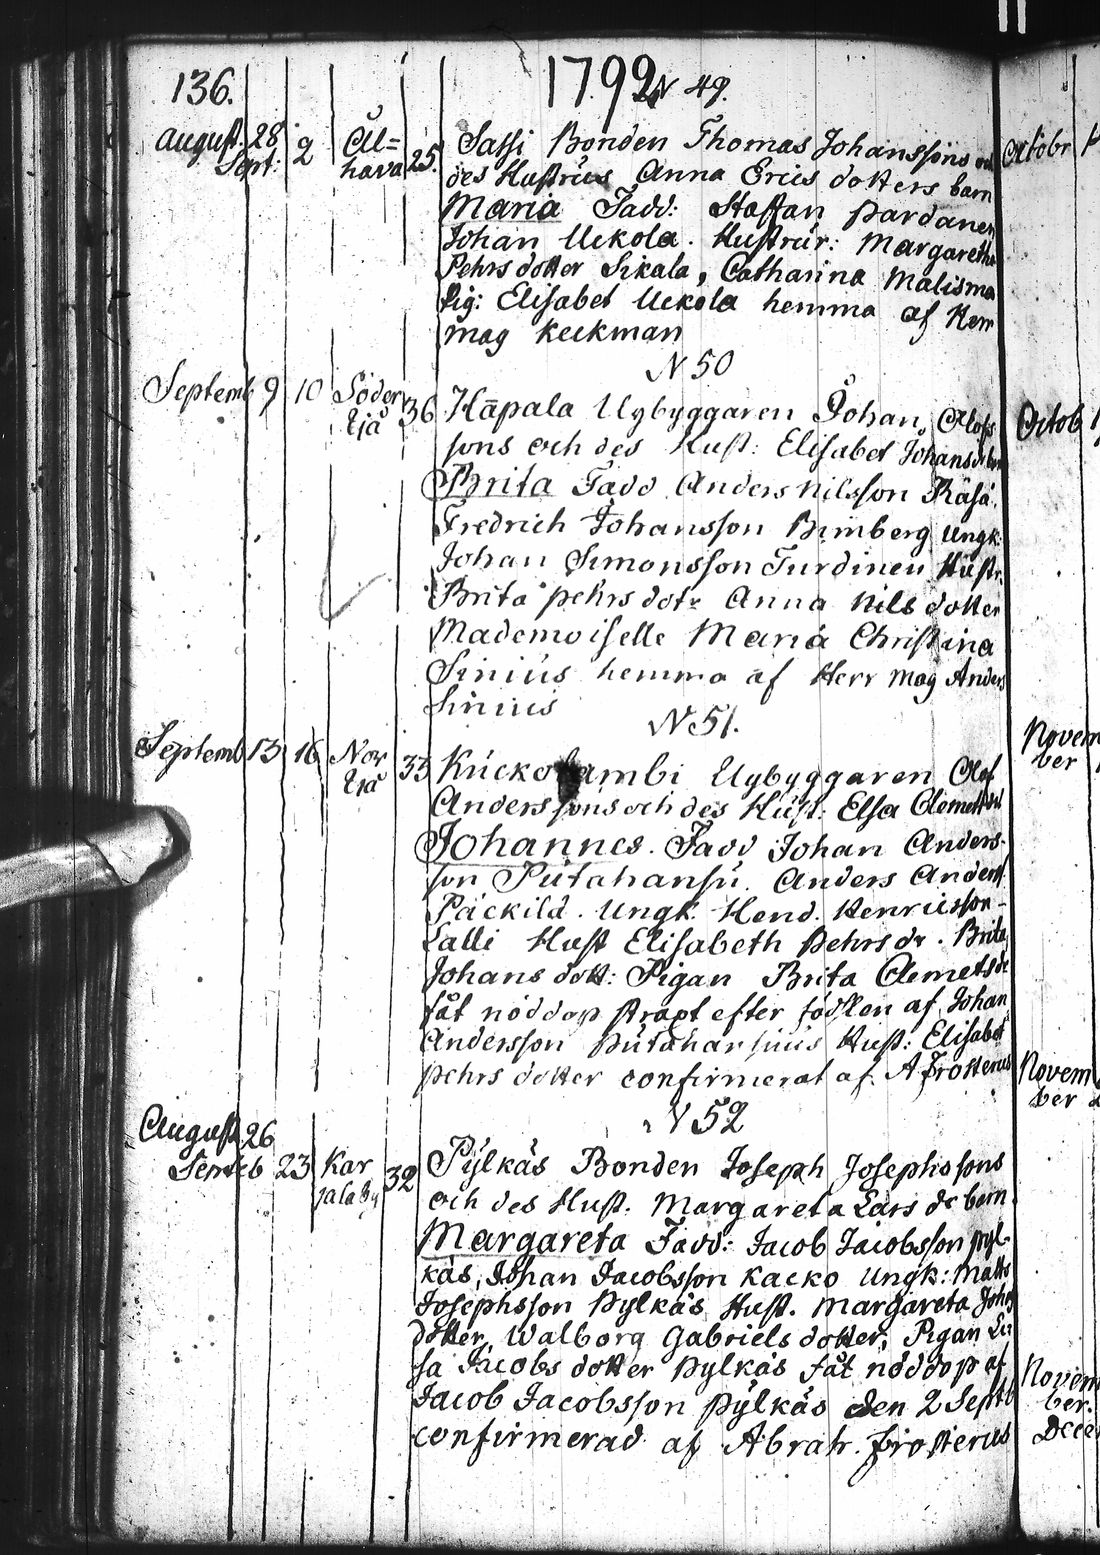 136. 1792 N 49.
August. 28 Sept. 2 Ål=hava 25. Sassi Bonden Thomas Johanssons och
des Hustrus Anna Erics dotters barn
Maria Fadd: Staffan Pardanen
Johan Uckola. Hustrur: Margaretha
Pehrs dotter Sikala, Catharina Malisma
Pig: Elisabet Uckola hemma af Herr
Mag Keckman
N 50
Septemb 9 10 Söder Ejä 36 Hapala Uybyggaren Johan Olofs
sons och des Hust: Elisabet Johans dr barn
Brita Fadd Anders Nilsson Räsä.
Fredrich Johansson Bimberg Ungk:
Johan Simonsson Turdinen Hustr.
Brita Pehrs dotr Anna Nils dotter
Mademoiselle Maria Christina
Sinius hemma af Herr Mag Anders
Sinius
N 51.
Septemb 13 16 Nor Ejä 33 Kuckolambi Uybyggaren Olof
Anderssons och des Hust: Elsa Clemetsd
Johannes. Fadd Johan Anders-
son Putahansu. Anders Anderss
Päckilä. Ungk. Hend. Henricsson-
Lalli Hust Elisabeth Pehrs dr. Brita
Johans dott: Pigan Brita Clemets dr
fåt nöddop strapt efter födslen af Johan
Andersson Putahansuus Hust: Elisabet
Pehrs dotter confirmerat af. A Frosterus
N 52
August 26
Septeb 23 Kar jalaby 32 Pylkäs Bonden Joseph Josephssons
och des Hust. Margareta Lars dr bern
Margareta Fadd: Jacob Jacobsson Pyl-
käs, Johan Jacobsson Kacko Ungk: Matts
Josephsson Pylkäs Hust. Margareta Johs
dotter, Walborg Gabriels dotter, Pigan Li
sa Jacobs dotter Pylkäs fåt nöddop af
Jacob Jacobsson Pylkäs den 2 Septb
confirmerad af Abrah. Frosterus
Octobr
Octob
Novem
ber
Novem
ber
Novem
ber.
Decem